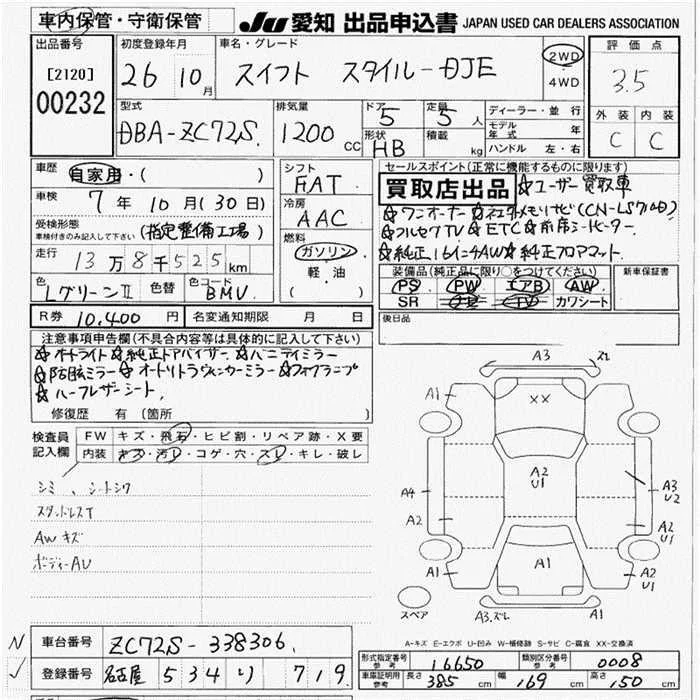 車内保管・守衛保管
JU 愛知 出品申込書 JAPAN USED CAR DEALERS ASSOCIATION
出品番号
[2120]
00232
初度登録年月
26 10月
車名・グレード
スイフト スタイル-DJE
2WD
4WD
評価点
3.5
外装 内装
C C
型式
DBA-ZC72S
排気量
1200 CC
ドア 5
定員 5人
形状 HB
積載 kg
ディーラー・並行
モデル年式 年
ハンドル 左・右
車歴 自家用・( )
車検 7年10月(30日)
受検形態
車検付きのみ記入して下さい (指定整備工場)
走行 13万8千525km
色 Lグリーン II 色替 色コード BMV
シフト
FAT
冷房
AAC
燃料
ガソリン
軽油
( )
セールスポイント(正常に機能するものに限ります)
買取店出品 ☆ユーザー買取車
☆ワンオーナー ☆純正メモリナビ(CN-LS710D)
☆フルセグTV ☆ETC ☆前席シートヒーター
☆純正16インチAW ☆純正フロアマット
装備品(純正品に限り○をつけてください)
PS PW エアB AW
SR ナビ TV カワシート
新車保証書
R券 10,400円 名変通知期限 月 日
後日品
注意事項申告欄(不具合内容等は具体的に記入して下さい)
☆オートライト ☆純正ドアバイザー ☆バニティミラー
☆防眩ミラー ☆オートリトラウィンカーミラー ☆フォグランプ
☆ハーフレザーシート
修復歴 有 (箇所 )
検査員記入欄
FW キズ・飛石・ヒビ割・リペア跡・X要
内装 キズ・汚レ・コゲ・穴・スレ・キレ・破レ
シミ、シートシワ
スタッドレスT
AWキズ
ボディーAU
A3 スレ
A1 XX A1
A2
U1
A4
A2
A3
U2
A2
U1
A1 A1 A2
U1
スペア
A3.ズレ A1
A-キズ E-エクボ U-凹み W-補修跡 S-サビ C-腐食 XX-交換済
N 車台番号 ZC72S-338306
✓ 登録番号 名古屋 534 り 719
形式指定番号 参考 16650 類別区分番号 参考 0008
車庫証明用 参考 長さ 385 cm 幅 169 cm 高さ 150 cm